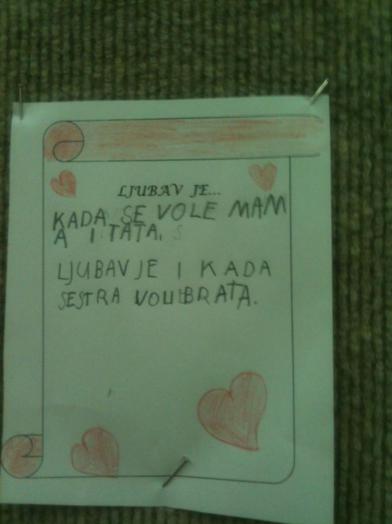 LJUBAV JE...
KADA SE VOLE MAM
A I TATA.
LJUBAV JE I KADA
SESTRA VOLI BRATA.